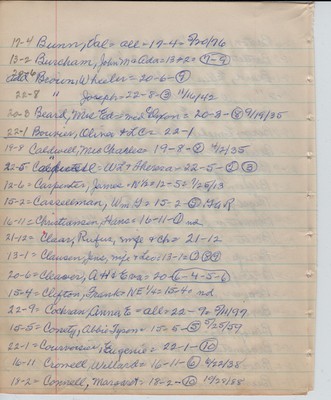 19-4 Bunn, Val = all = 19-4 = 9/20/76
13-2 Burcham, John M & Ada = 13 & 2 = 7-9
20-6 Brown, Wheeler = 20-6-9
22-8 " Joseph = 22-8-3 11/16/42
20-3 Beard, Mrs Ed = = 20-3-8 9/19/35
22-1 Bowers, Oliver & L.Cr. 22-1
19-8 Caldwell, Mrs Charles = 19-8-2 4/2/35
22-5 = W.L & Theresa = 22-5-2 3
12-6 = Carpenter, James = N½ = 12-5 = 1/25/13
15-2 = Casselman, Wm G = 15-2-5 G.A.R
16-11 = Christiansen, Hans = 16-11-1 nd
21-12 = Clear, Rufus, wife & ch = 21-12
13-1 = Clausen, Jens, wife & Leo = 13-1 = 2 8 9
20-6 = Cleaver, A.H & Eva = 20-6-4-5-6
15-4 = Clifton, Frank = NE¼ = 15-4 = nd
22-9 = Cochran, Anna E = all = 22-9 = 9/11/97
15-5 = Conety, Abbie Tyson = 15-5-5 5/25/59
22-1 = Courvoisier, Eugenie = 22-1-10
16-11 Cromell, Willard = 16-11-6 4/22/38
18-2 = Connell, Margaret = 18-2-10 10/20/88